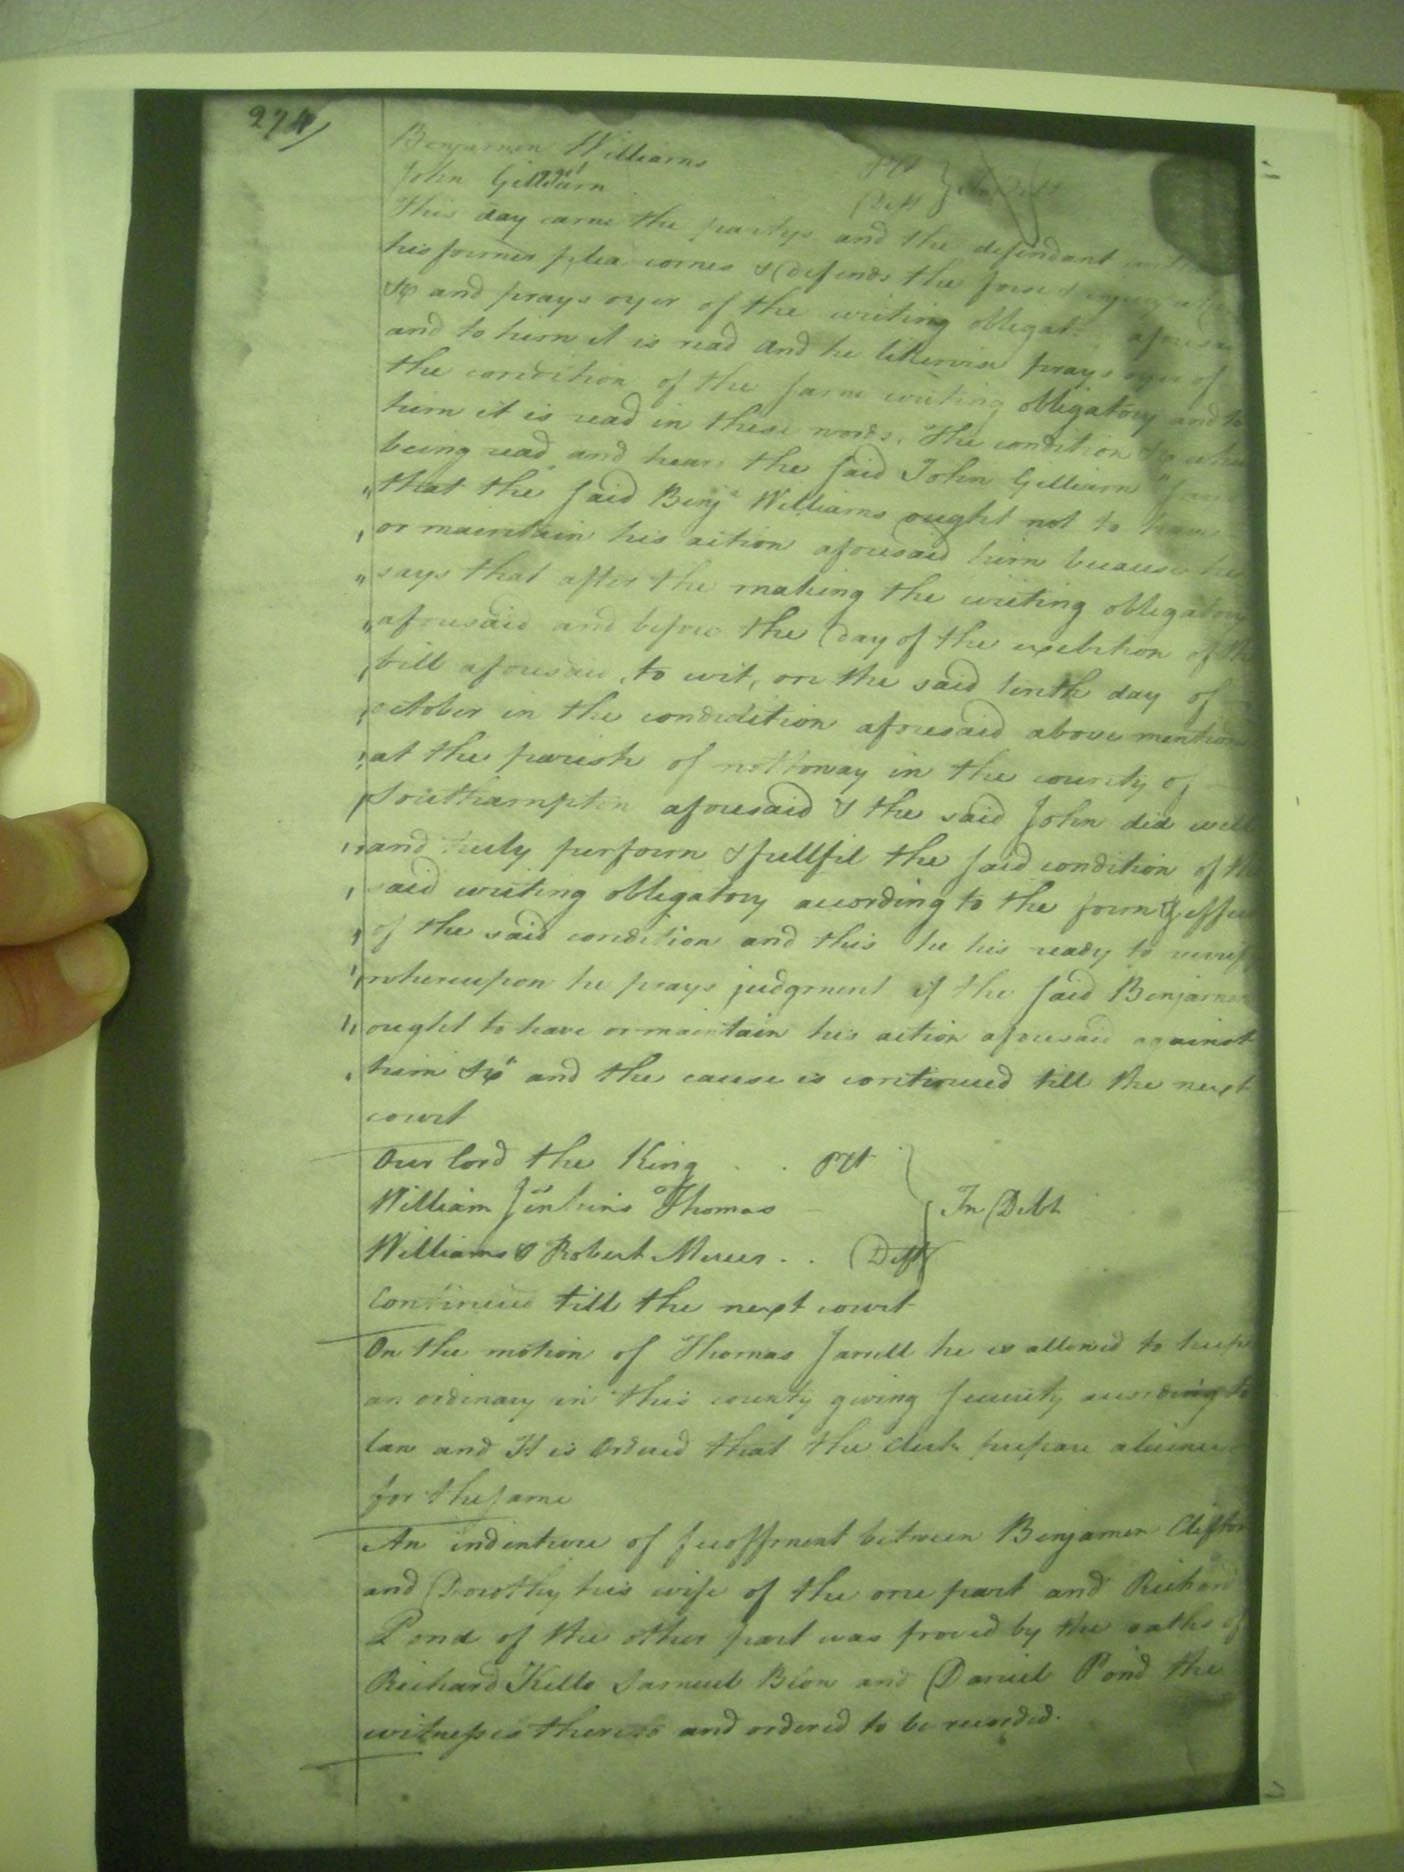 274
Benjamen Williams Plt
agst
John Gilliam Deft In Debt
This day came the partys and the defendant
his former plea comes & defends the force & injury when
&c and prays oyer of the writing obligat. aforesaid
and to him it is read and he likewise prays oyer of
the condition of the same writing obligatory and to
him it is read in these words, The condition &c which
being read and heard the said John Gilliam "
"that the said Benja Williams ought not to have
or maintain his action aforesaid him because he
"says that after the making the writing obligatory
"aforesaid and before the day of the exebition of the
bill aforesaid, to wit, on the said tenth day of
october in the condidition aforesaid above mention
at the parish of nottoway in the county of
Southampton aforesaid & the said John did well
and truly perform & fullfil the said condition of the
said writing obligatory according to the form & effect
of the said condition and this he his ready to verify
whereupon he prays judgment if the said Benjamen
ought to have or maintain his action aforesaid against
him &c" and the cause is continued till the next
court
Our lord the King . . Plt
agst
William Jenkins Thomas In Debt
Williams & Robert Mercer . . Deft
Continued till the next court
On the motion of Thomas Jarrell he is allowed to keep
an ordinary in this county giving security according to
law and It is Ordered that the Clerk prepare a licence
for the same
An indenture of feoffment between Benjamen Clifton
and Dorothy his wife of the one part and Richard
Pond of the other part was proved by the oaths of
Richard Kello Samuel Blow and Daniel Pond the
witnesses thereto and ordered to be recorded.